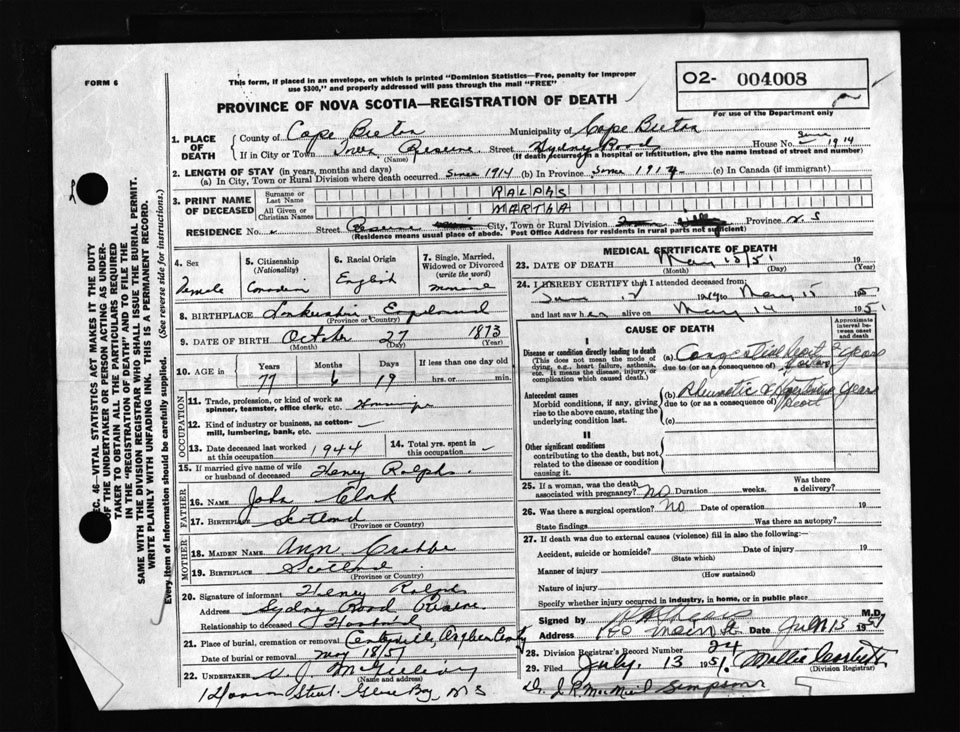 FORM 6
This form, if placed in an envelope, on which is printed "Dominion Statistics—Free, penalty for improper
use $300," and properly addressed will pass through the mail "FREE"
O2- 004008
For use of the Department only
PROVINCE OF NOVA SCOTIA—REGISTRATION OF DEATH
1. PLACE OF DEATH
County of Cape Breton Municipality of Cape Breton
If in City or Town Reserve Street Sydney Road House No.
(Name) (If death occurred in a hospital or institution, give the name instead of street and number)
2. LENGTH OF STAY (in years, months and days)
(a) In City, Town or Rural Division where death occurred since 1914 (b) In Province since 1914 (c) In Canada (if immigrant)
3. PRINT NAME OF DECEASED
Surname or Last Name RALPHS
All Given or Christian Names MARTHA
RESIDENCE No. Reserve City, Town or Rural Division Province N.S
(Residence means usual place of abode. Post Office Address for residents in rural parts not sufficient)
4. Sex Female
5. Citizenship (Nationality) Canadian
6. Racial Origin English
7. Single, Married, Widowed or Divorced (write the word)
8. BIRTHPLACE England
(Province or Country)
9. DATE OF BIRTH October 27 1873
(Month) (Day) (Year)
10. AGE in Years Months Days If less than one day old
77 6 19 hrs. or min.
OCCUPATION
11. Trade, profession, or kind of work as spinner, teamster, office clerk, etc. Housewife
12. Kind of industry or business, as cotton-mill, lumbering, bank, etc.
13. Date deceased last worked at this occupation 1944
14. Total yrs. spent in this occupation
15. If married give name of wife or husband of deceased Henry Ralphs
FATHER
16. NAME John Clark
17. BIRTHPLACE Scotland
(Province or Country)
MOTHER
18. MAIDEN NAME Ann Crabbe
19. BIRTHPLACE Scotland
(Province or Country)
20. Signature of informant Henry Ralphs
Address Sydney Road Reserve
Relationship to deceased Husband
21. Place of burial, cremation or removal
Date of burial or removal May 18/51
22. UNDERTAKER
(Name and address)
Street Glace Bay N S
MEDICAL CERTIFICATE OF DEATH
23. DATE OF DEATH May 15/51 19
(Month) (Day) (Year)
24. I HEREBY CERTIFY that I attended deceased from:
to May 15 1951
and last saw her alive on May 14 1951
CAUSE OF DEATH
Approximate interval between onset and death
I
Disease or condition directly leading to death
(This does not mean the mode of dying, e.g., heart failure, asthenia, etc. It means the disease, injury, or complication which caused death.)
(a) Congestive heart failure 2 years
due to (or as a consequence of)
Antecedent causes
Morbid conditions, if any, giving rise to the above cause, stating the underlying condition last.
(b) Rheumatic & years
due to (or as a consequence of) heart
(c)
II
Other significant conditions
contributing to the death, but not related to the disease or condition causing it.
25. If a woman, was the death associated with pregnancy? No Duration weeks. Was there a delivery?
26. Was there a surgical operation? No Date of operation 19
State findings Was there an autopsy?
27. If death was due to external causes (violence) fill in also the following:—
Accident, suicide or homicide? Date of injury 19
(State which)
Manner of injury
(How sustained)
Nature of injury
Specify whether injury occurred in industry, in home, or in public place
Signed by M.D.
Address Main St Date July 13 1951
28. Division Registrar's Record Number 24
29. Filed July 13 1951
(Division Registrar)
Simpson
SEC. 46—VITAL STATISTICS ACT MAKES IT THE DUTY
OF THE UNDERTAKER OR PERSON ACTING AS UNDER-
TAKER TO OBTAIN ALL THE PARTICULARS REQUIRED
IN THE "REGISTRATION OF DEATH" AND TO FILE THE
SAME WITH THE DIVISION REGISTRAR WHO SHALL ISSUE THE BURIAL PERMIT.
WRITE PLAINLY WITH UNFADING INK. THIS IS A PERMANENT RECORD.
Every item of information should be carefully supplied. (See reverse side for instructions.)